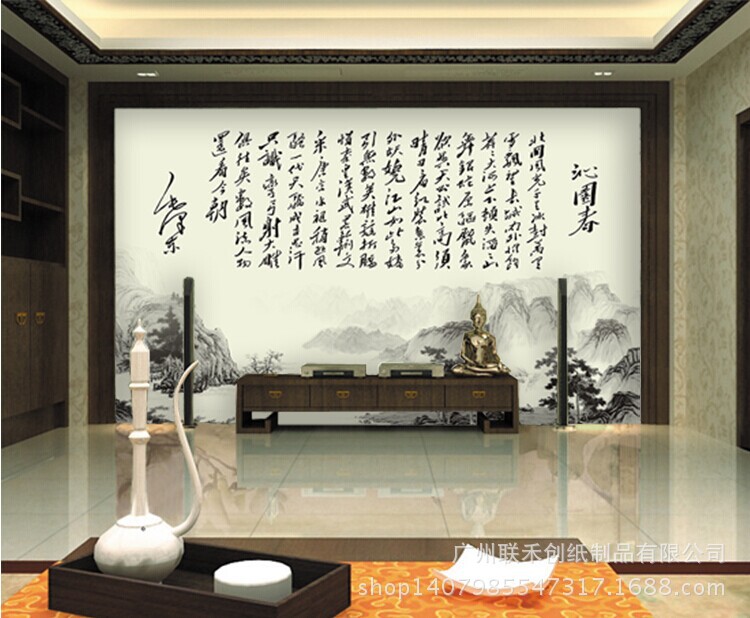 沁園春
北国风光千里冰封万里
雪飘望长城内外惟余
莽莽大河上下顿失滔滔山
舞银蛇原驰蜡象
欲与天公试比高须
晴日看红装素裹分
外妖娆江山如此多娇
引无数英雄竞折腰
惜秦皇汉武略输文
采唐宗宋祖稍逊风
骚一代天骄成吉思汗
只识弯弓射大雕
俱往矣数风流人物
還看今朝
毛泽东
广州联禾创纸制品有限公司
shop1407985547317.1688.com